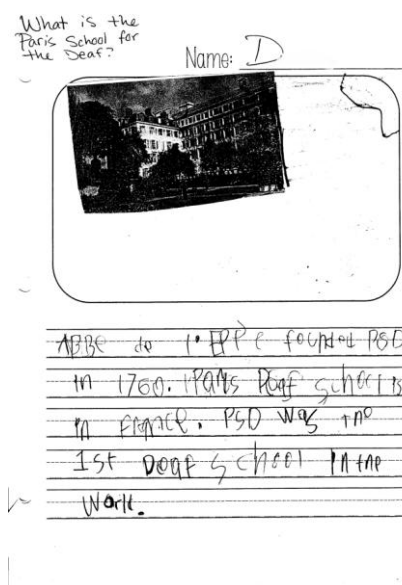 What is the
Paris School for
the Deaf?
Name: D
ABBe de l'EPPe founded PSD
in 1760. Paris Deaf school is
in France. PSD was the
1st Deaf school in the
World.